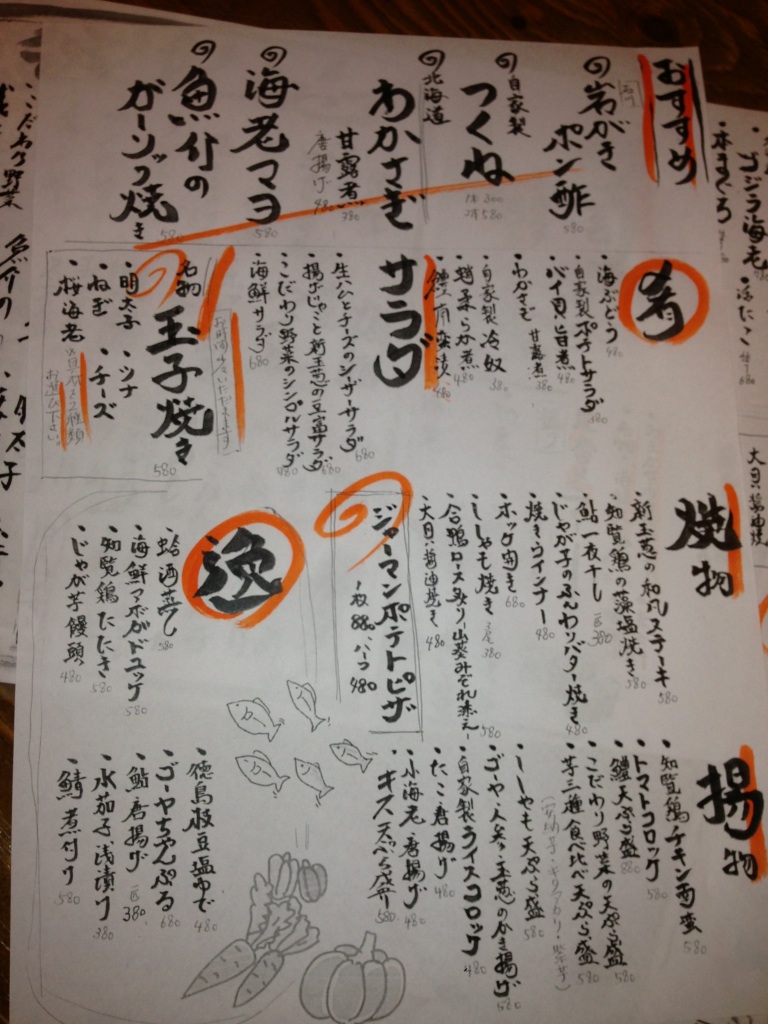 おすすめ
石川
岩がき
ポン酢
580
自家製
つくね
1本 300
2本 580
北海道
わかさぎ
甘露煮 380
唐揚げ 480
海老マヨ
580
魚介の
ガーリック焼き
580
肴
・海ぶどう 480
・自家製ポテトサラダ 380
・バイ貝旨煮 480
・わかさぎ 甘露煮 380
・自家製冷奴 380
・蛸柔らか煮 480
480
サラダ
・生ハムとチーズのシーザーサラダ 680
・揚げじゃこと新玉葱の豆腐サラダ 680
・こだわり野菜のシンプルサラダ 480
・海鮮サラダ 680
お時間少々いただきます
名物
玉子焼き
580
・明太子 ・ツナ
・ねぎ ・チーズ
・桜海老
※具材を2種類
お選び下さい。
焼物
・新玉葱の和風ステーキ 580
・知覧鶏の藻塩焼き 580
・鮎一夜干し 一匹 380
・じゃが子のふんわりバター焼き 480
・焼きウインナー 480
・ホッケ開き 680
・ししゃも焼き 380
・合鴨ロース炙り〜山葵みぞれ添え〜 580
・大貝醤油焼き 480
ジャーマンポテトピザ
一枚 880、ハーフ 480
逸
・蛤酒蒸し 580
・海鮮アボガドユッケ 580
・知覧鶏たたき 580
・じゃが芋饅頭 480
揚物
・知覧鶏チキン南蛮 580
・トマトコロッケ 580
・鱧天ぷら盛 880
・こだわり野菜の天ぷら盛 580
・芋三種食べ比べ天ぷら盛 580
(安納芋・キタアカリ・紫芋)
・ししゃも天ぷら盛 580
・ゴーヤ・人参・玉葱のかき揚げ 580
・自家製ライスコロッケ 480
・たこ唐揚げ 480
・小海老唐揚げ 480
・キス天ぷら盛り 580
・徳島枝豆塩ゆで 480
・ゴーヤちゃんぷる 680
・鮎唐揚げ 一匹 380
・水茄子浅漬け 380
・鯖煮付け 580
ゴジラ海老
本まぐろ
大貝醤油焼
こだわり野菜
魚介の